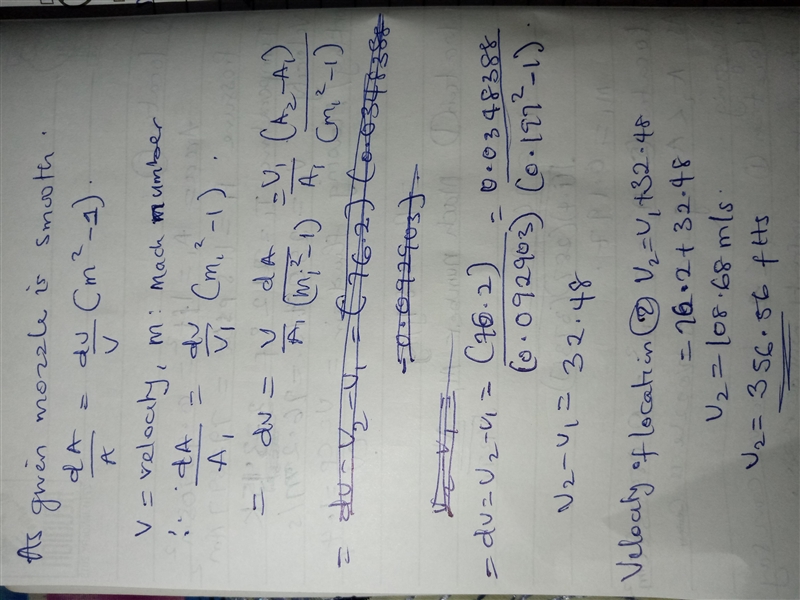 As given nozzle is smooth.
dA/A = dv/V (m² - 1).
V = velocity, m: Mach number
∴ dA/A₁ = dv/V₁ (m₁² - 1).
= dv = V dA / A₁(m₁² - 1) = V₁/A₁ (A₂ - A₁)/(m₁² - 1)
= dv = V₂ - V₁ = (76.2)(0.0348388
= 0.092903)
V₂ - V₁ =
= dv = V₂ - V₁ = (76.2)/(0.092903) = 0.0348388/(0.197² - 1).
V₂ - V₁ = 32.48
Velocity of location ② V₂ = V₁ + 32.48
= 76.2 + 32.48
V₂ = 108.68 m/s.
V₂ = 356.56 ft/s